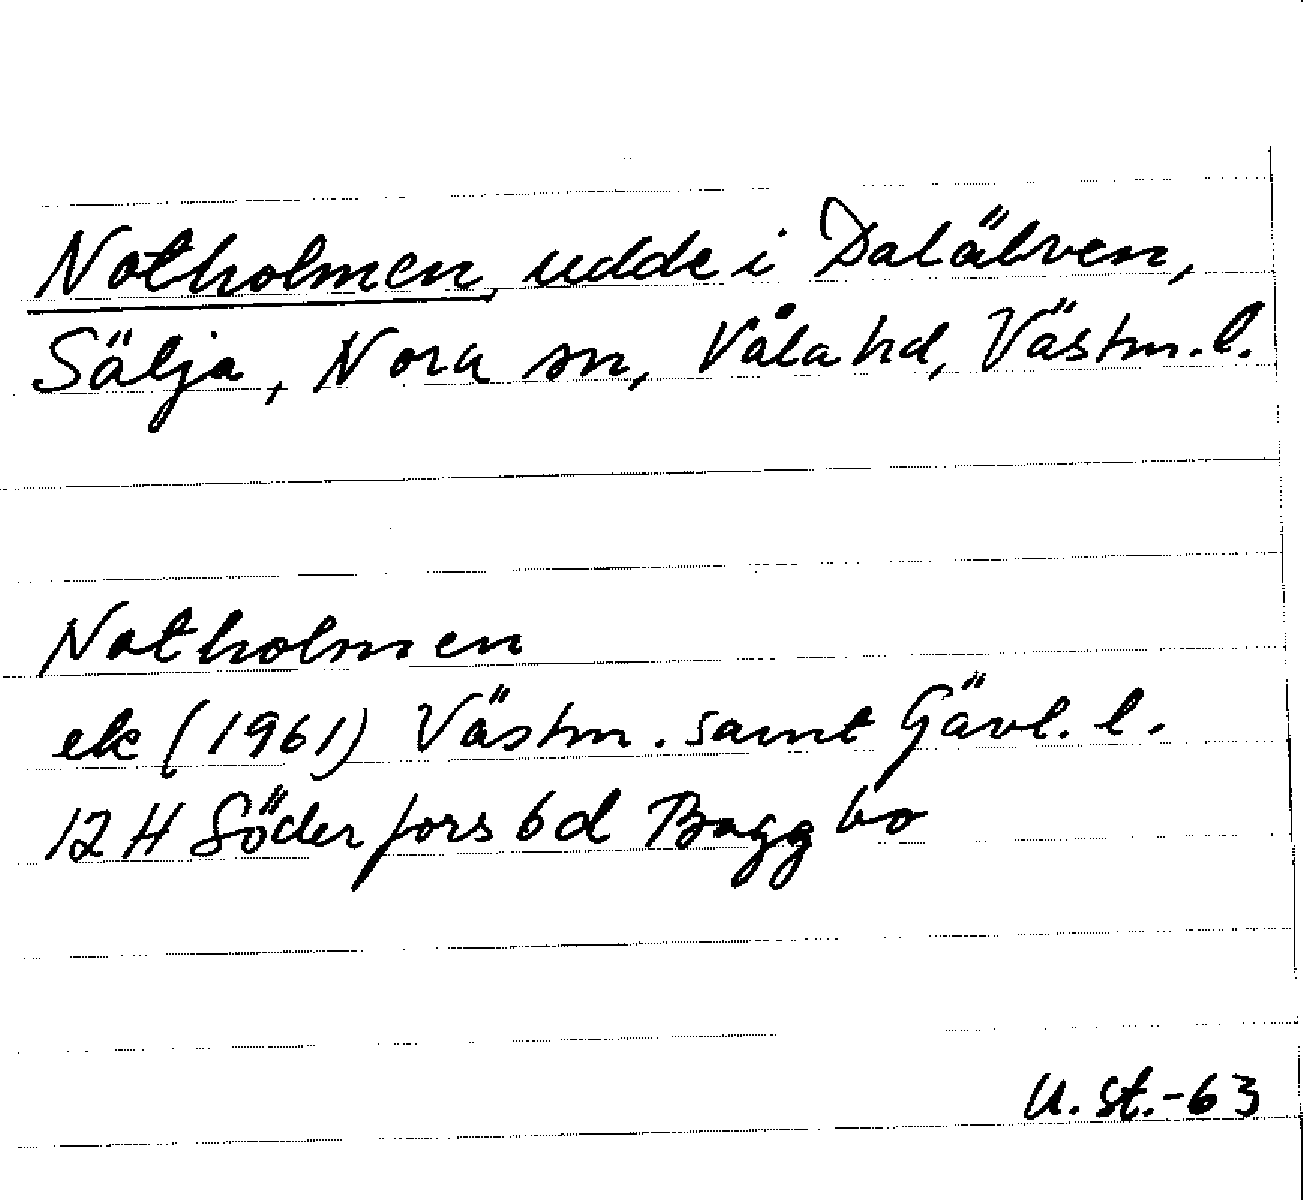 Notholmen, udde i Dalälven,
Sälja, Nora sn, Våla hd, Västm. l.
Notholmen
ek (1961) Västm. samt Gävl. l.
12 H Söderfors 6d Baggbo
U. St.-63